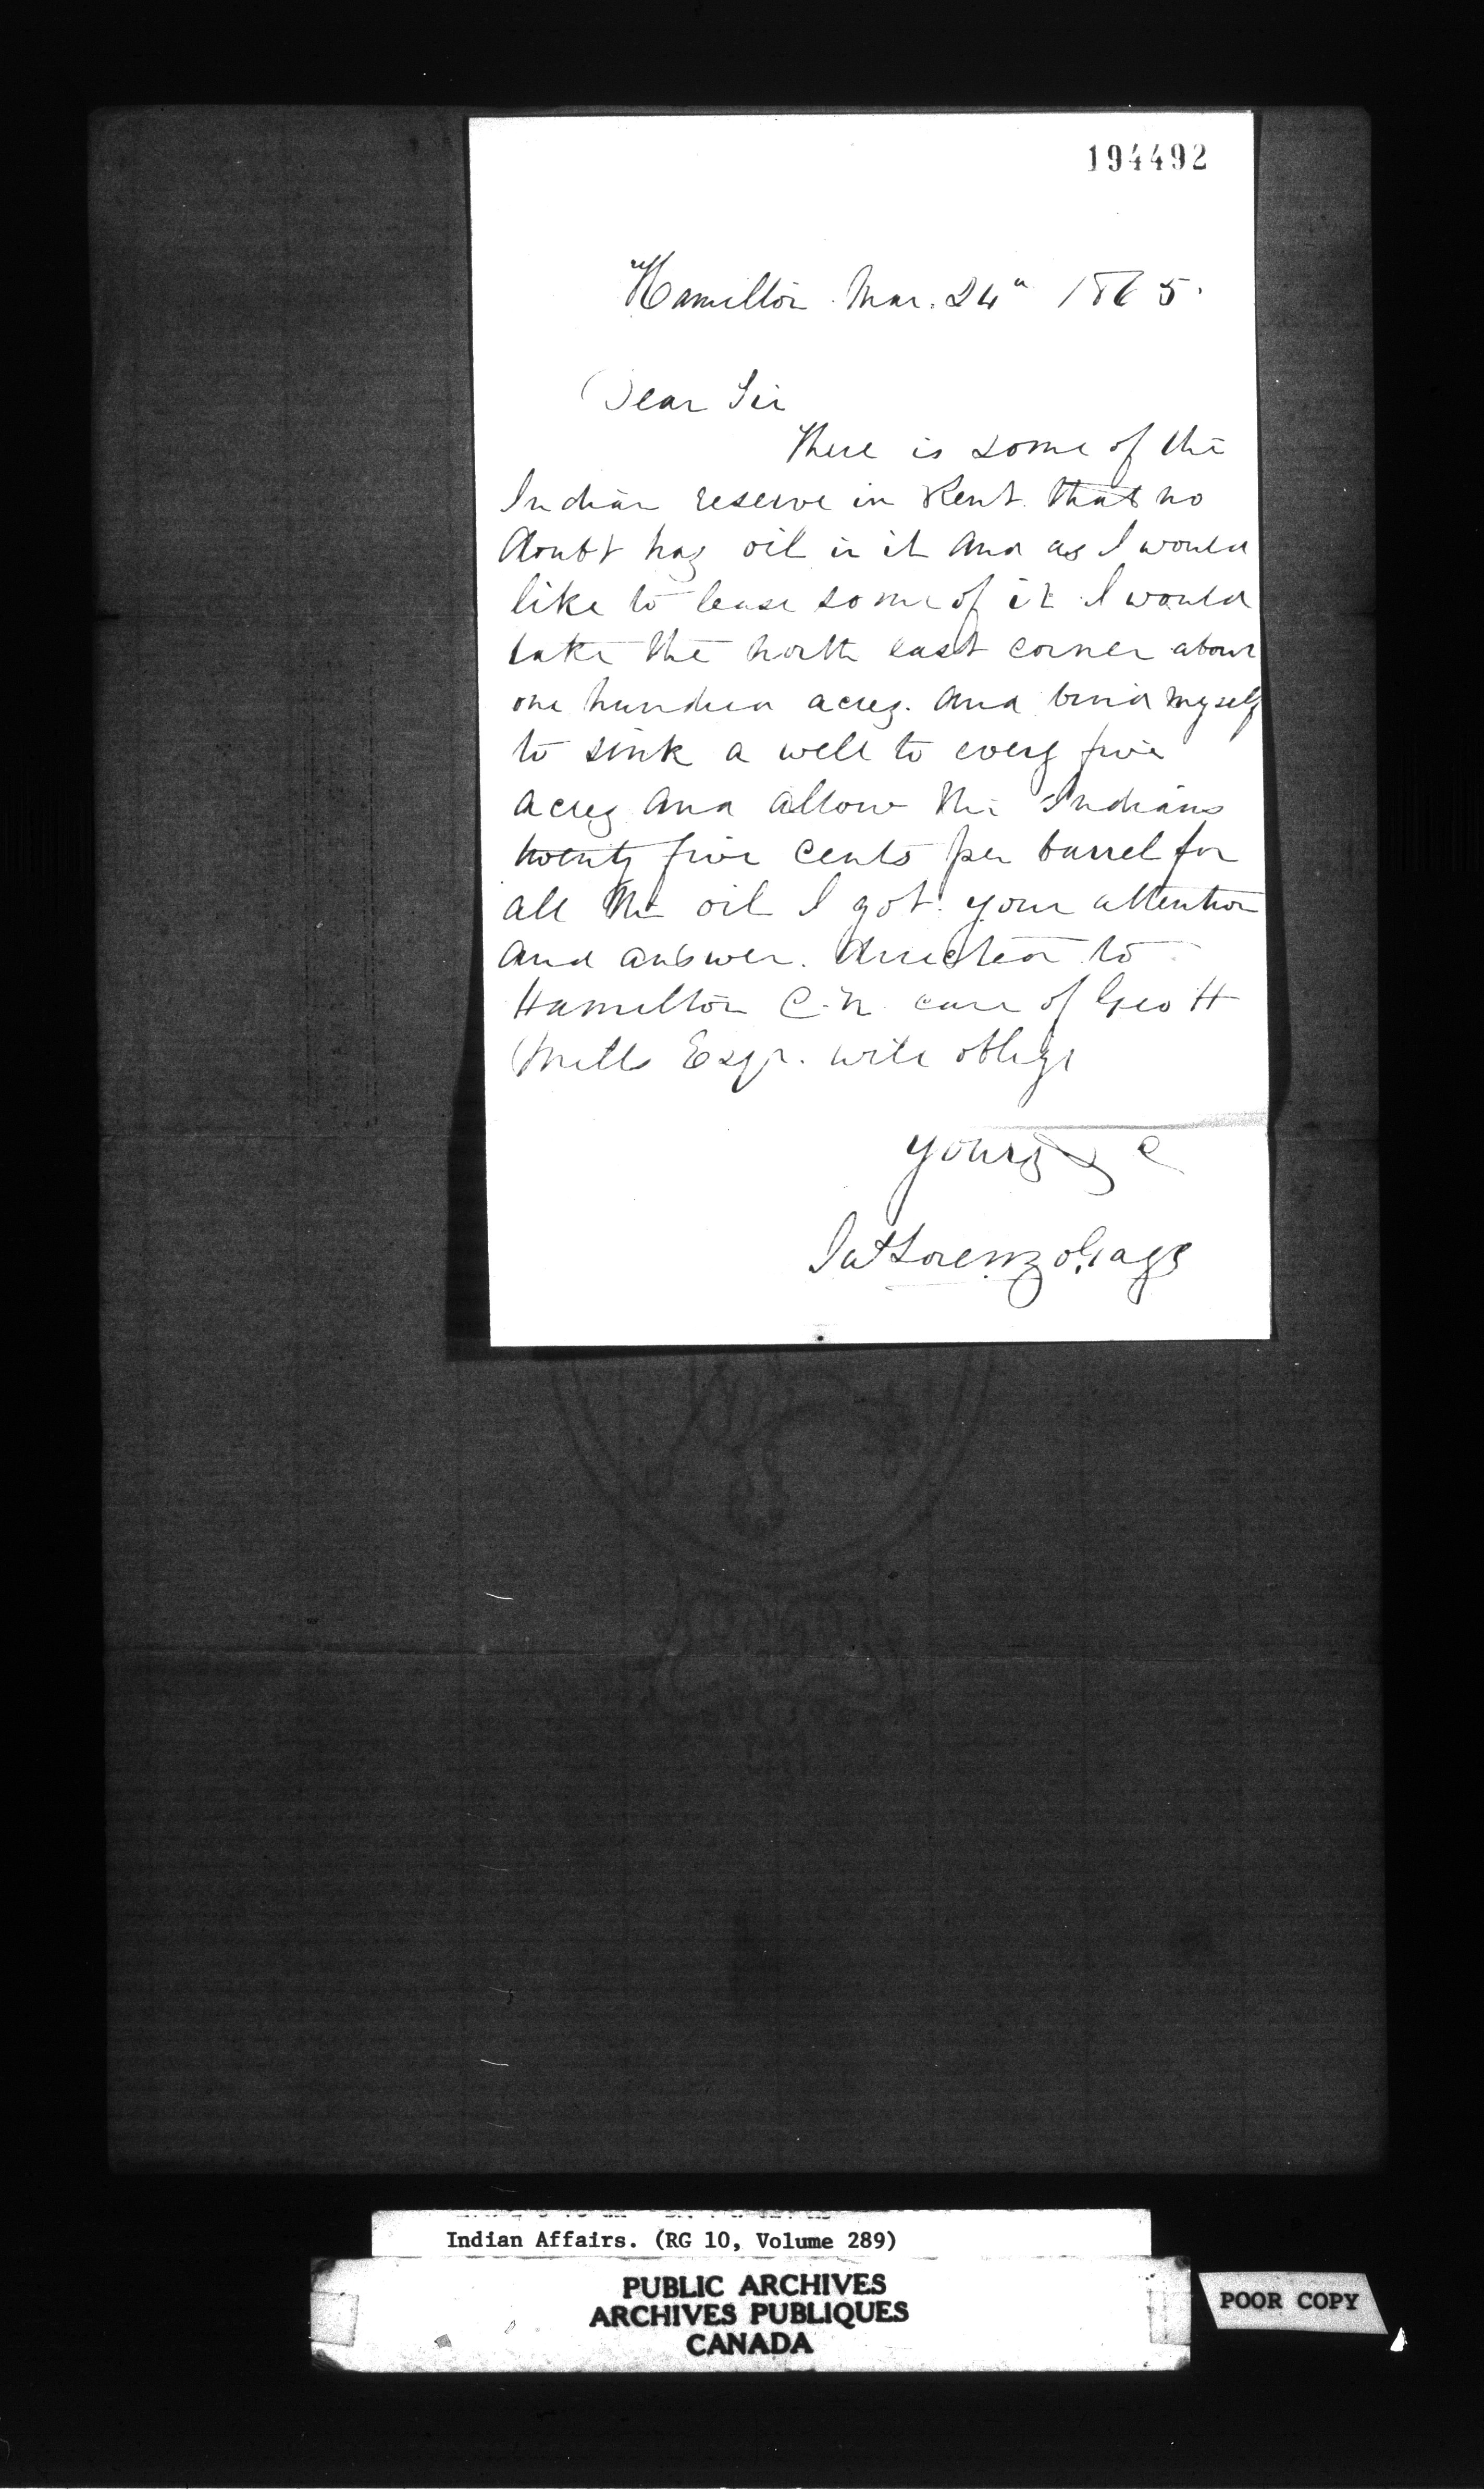 194492
Hamilton Mar. 24" 1865.
Dear Sir
There is some of the
Indian reserve in Kent that no
doubt has oil in it and as I would
like to lease some of it I would
take the north east corner about
one hundred acres. and bind myself
to sink a well to every five
acres and allow the Indians
twenty five cents per barrel for
all the oil I got. your attention
and answer. directed to
Hamilton C. W. care of Geo H
Mills Esqr. will oblige
yours & c
Lorenzo Gage
Indian Affairs. (RG 10, Volume 289)
PUBLIC ARCHIVES
ARCHIVES PUBLIQUES
CANADA
POOR COPY